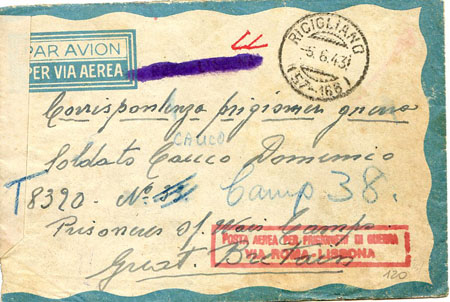 PAR AVION
PER VIA AEREA
RICIGLIANO
-5.6.43
(57-168)
Corrispondenza prigionieri guerra
CAUCO
Soldato Cauco Domenico
T 8390 - No 33 Camp 38.
Prisoners of War Camp
POSTA AEREA PER PRIGIONIERI DI GUERRA
VIA ROMA LISBONA
Great Britain
120